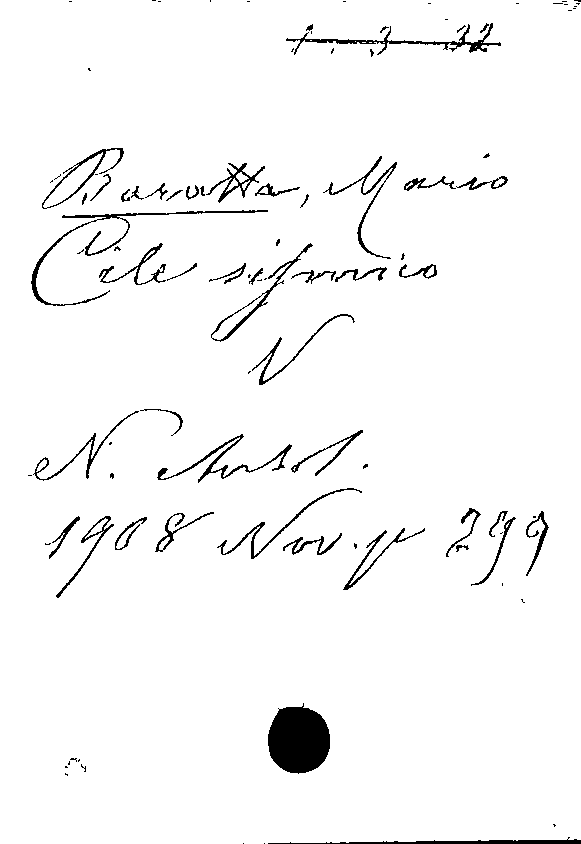 1. 3. 32
Baratta, Mario
Cile sismico
V
N. Antol.
1908 Nov. p 299